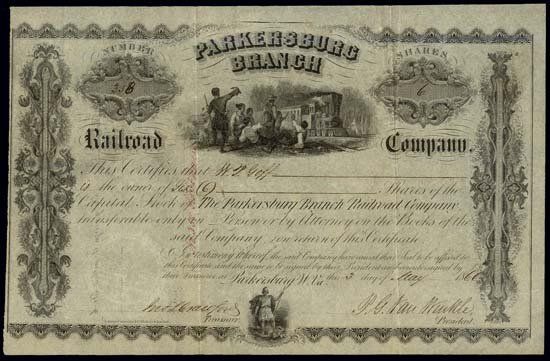 NUMBER
38
PARKERSBURG
BRANCH
SHARES
6
Railroad
Company.
This Certifies that
is the owner of Six (6) Shares of the
Capital Stock of The Parkersburg Branch Railroad Company
transferable only in Person or by Attorney on the Books of the
said Company on return of this Certificate
In Testimony Whereof, the said Company have caused their Seal to be affixed to
this Certificate and the same to be signed by their President and countersigned by
their Treasurer at Parkersburg W. Va the 3 day of May 186
Treasurer
P. G. Van Winkle
President